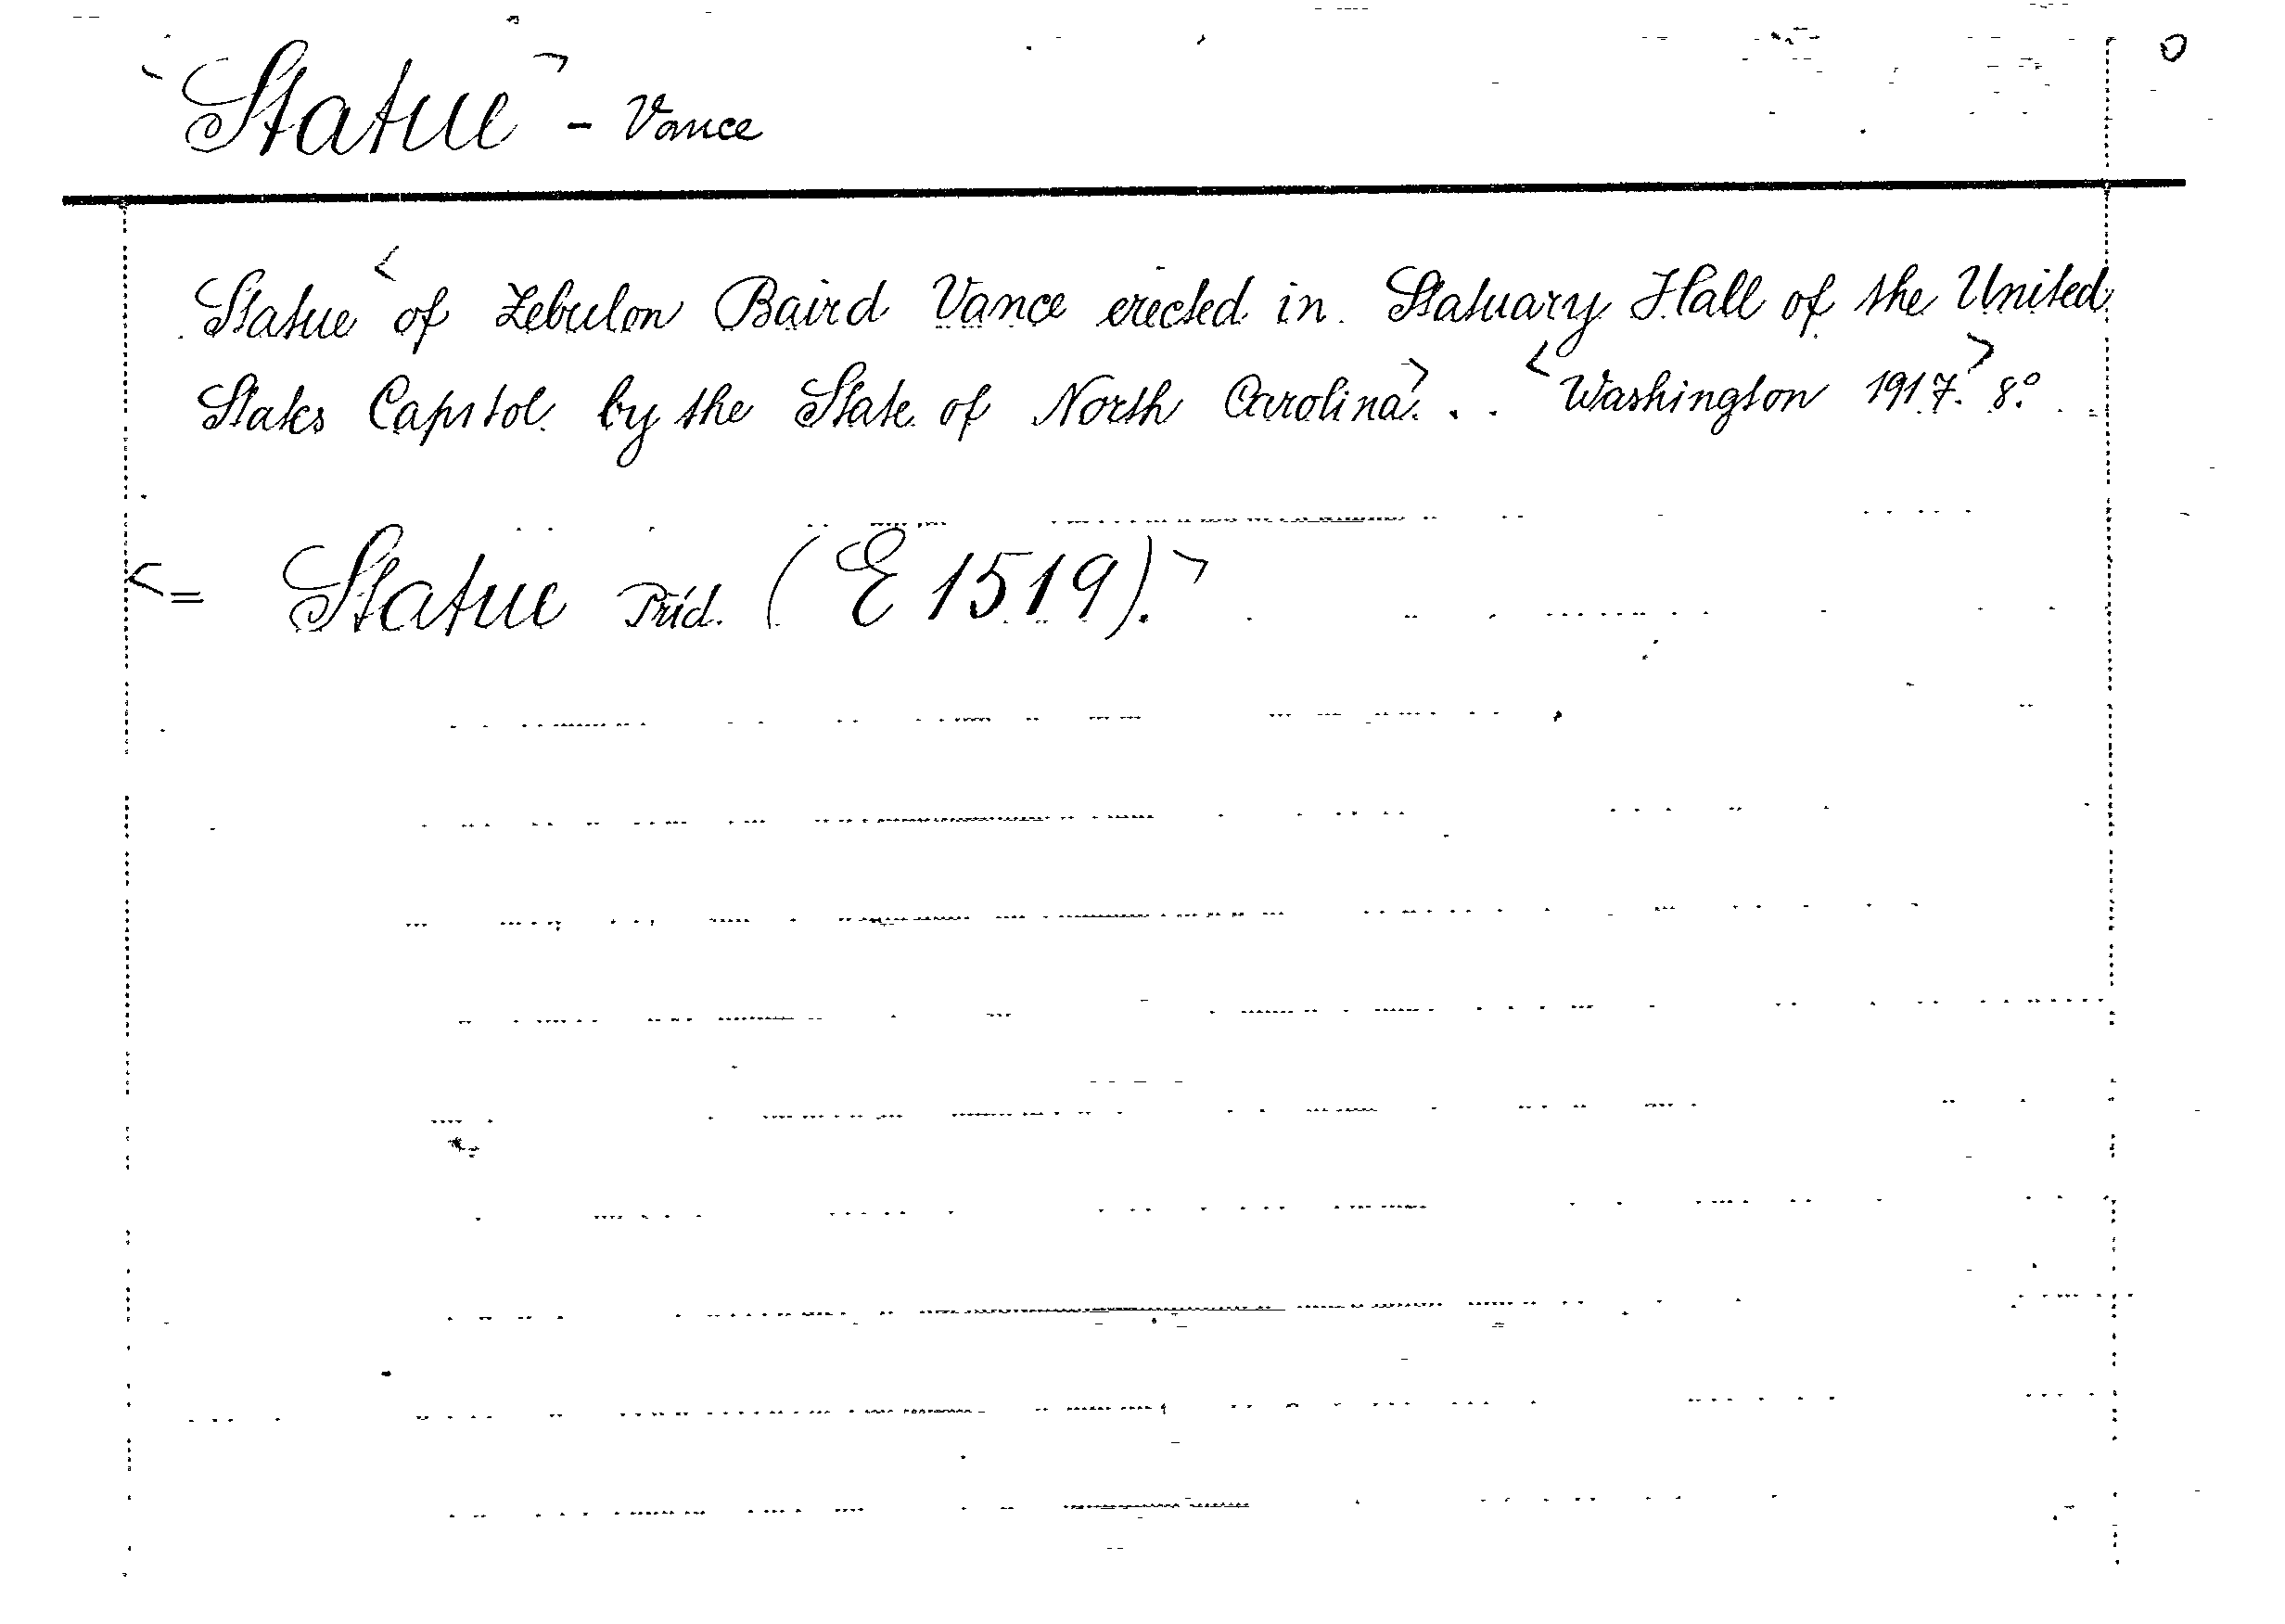 Statue - Vance
Statue < of Zebulon Baird Vance erected in Statuary Hall of the United
States Capitol by the State of North Carolina.> . . <Washington 1917.> 8.°
<= Statue Příd. (E 1519).>